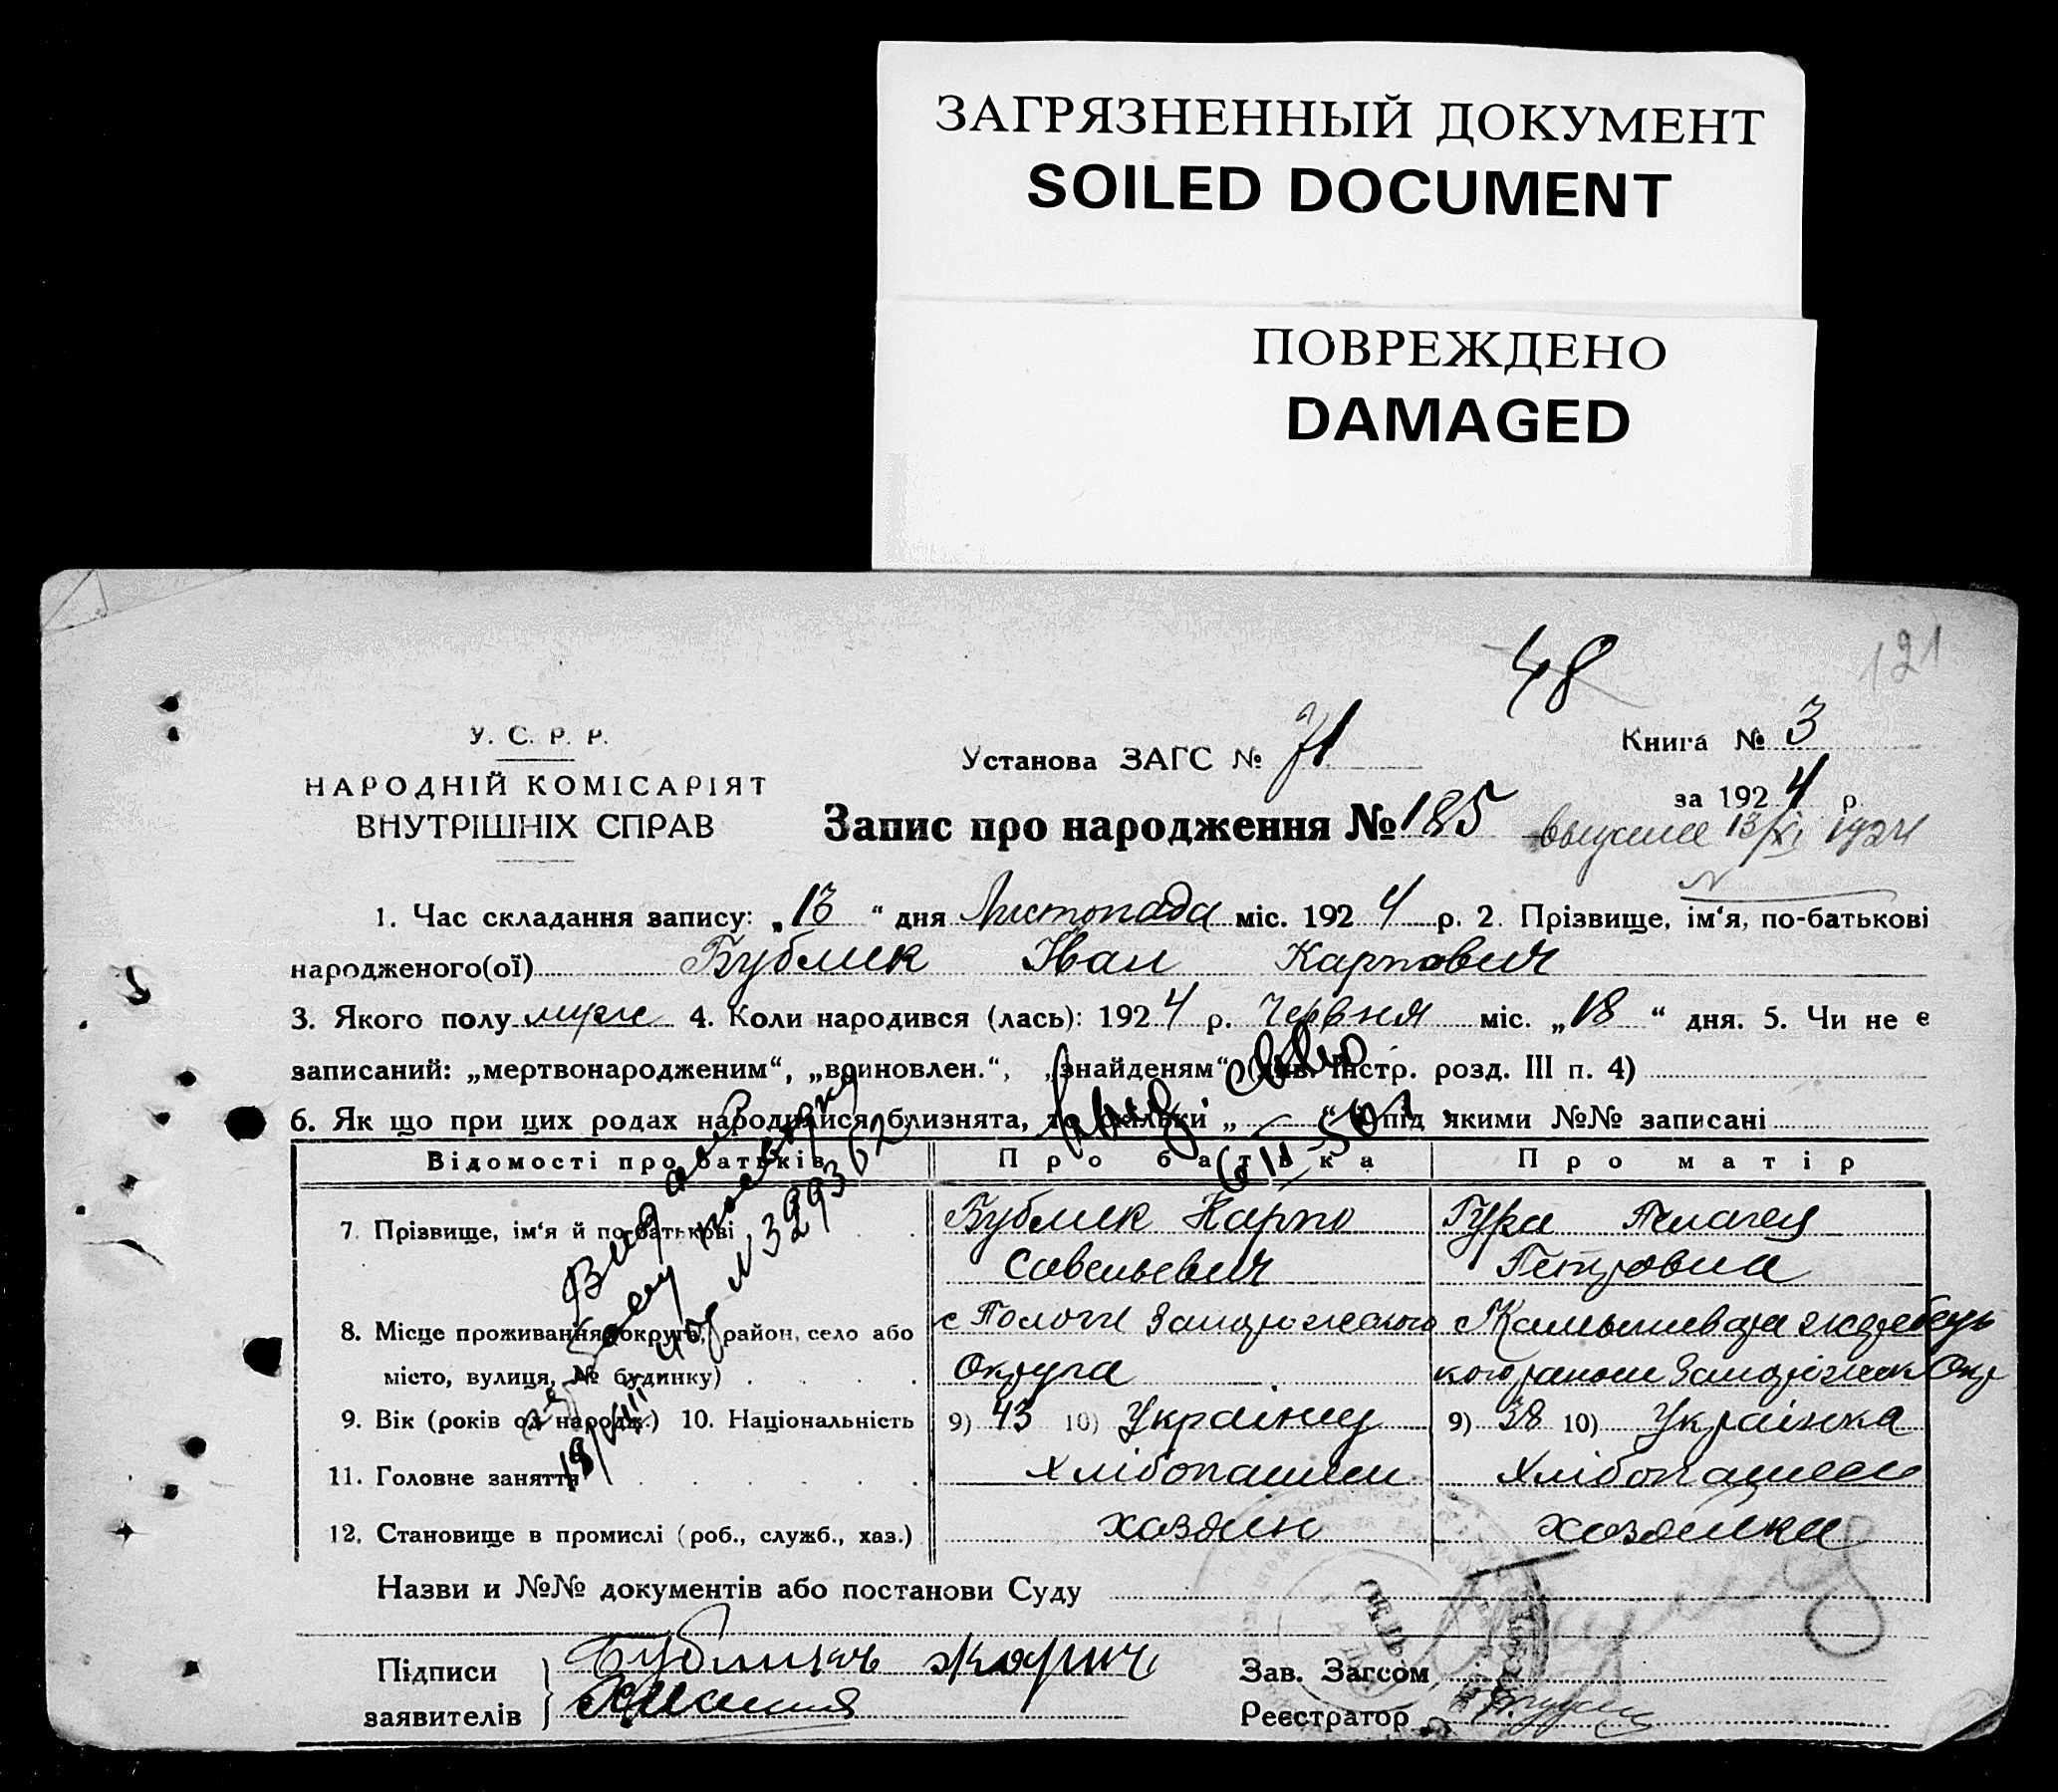 ЗАГРЯЗНЕННЫЙ ДОКУМЕНТ
SOILED DOCUMENT
ПОВРЕЖДЕНО
DAMAGED
48
121
У. С. Р. Р.
НАРОДНІЙ КОМІСАРІЯТ
ВНУТРІШНІХ СПРАВ
Установа ЗАГС № 71
Книга № 3
за 1924 р
Запис про народження № 185
13/XI 1924
1. Час складання запису: „13“ дня Листопада міс. 1924 р. 2. Прізвище, ім‘я, по-батькові
народженого(ої) Бублик Іван Карпович
3. Якого полу муж 4. Коли народився (лась): 1924 р. Червня міс. „18“ дня. 5. Чи не є
записаний: „мертвонародженим“, „вриновлен.“, „знайденям“ (див. Інстр. розд. III п. 4)
6. Як що при цих родах народилися близнята, то скільки „ “ й під якими №№ записані
Відомості про батьків
Про батька
Про матір
7. Прізвище, ім‘я й по-батькові
Бублик Карпо
Савельевич
Гура Пелагея
Петровна
8. Місце проживання (округа, район, село або
місто, вулиця, № будинку)
с Пологи Запорожского
Округа
с Камышеваха
9. Вік (років од народж.) 10. Національність
9) 43 10) Українец
9) 38 10) Українка
11. Головне заняття
Хлібопашец
Хлібопашец
12. Становище в промислі (роб., служб., хаз.)
хозяин
хозяйка
Назви и №№ документів або постанови Суду
Підписи
заявителів
Зав. Загсом
Реєстратор